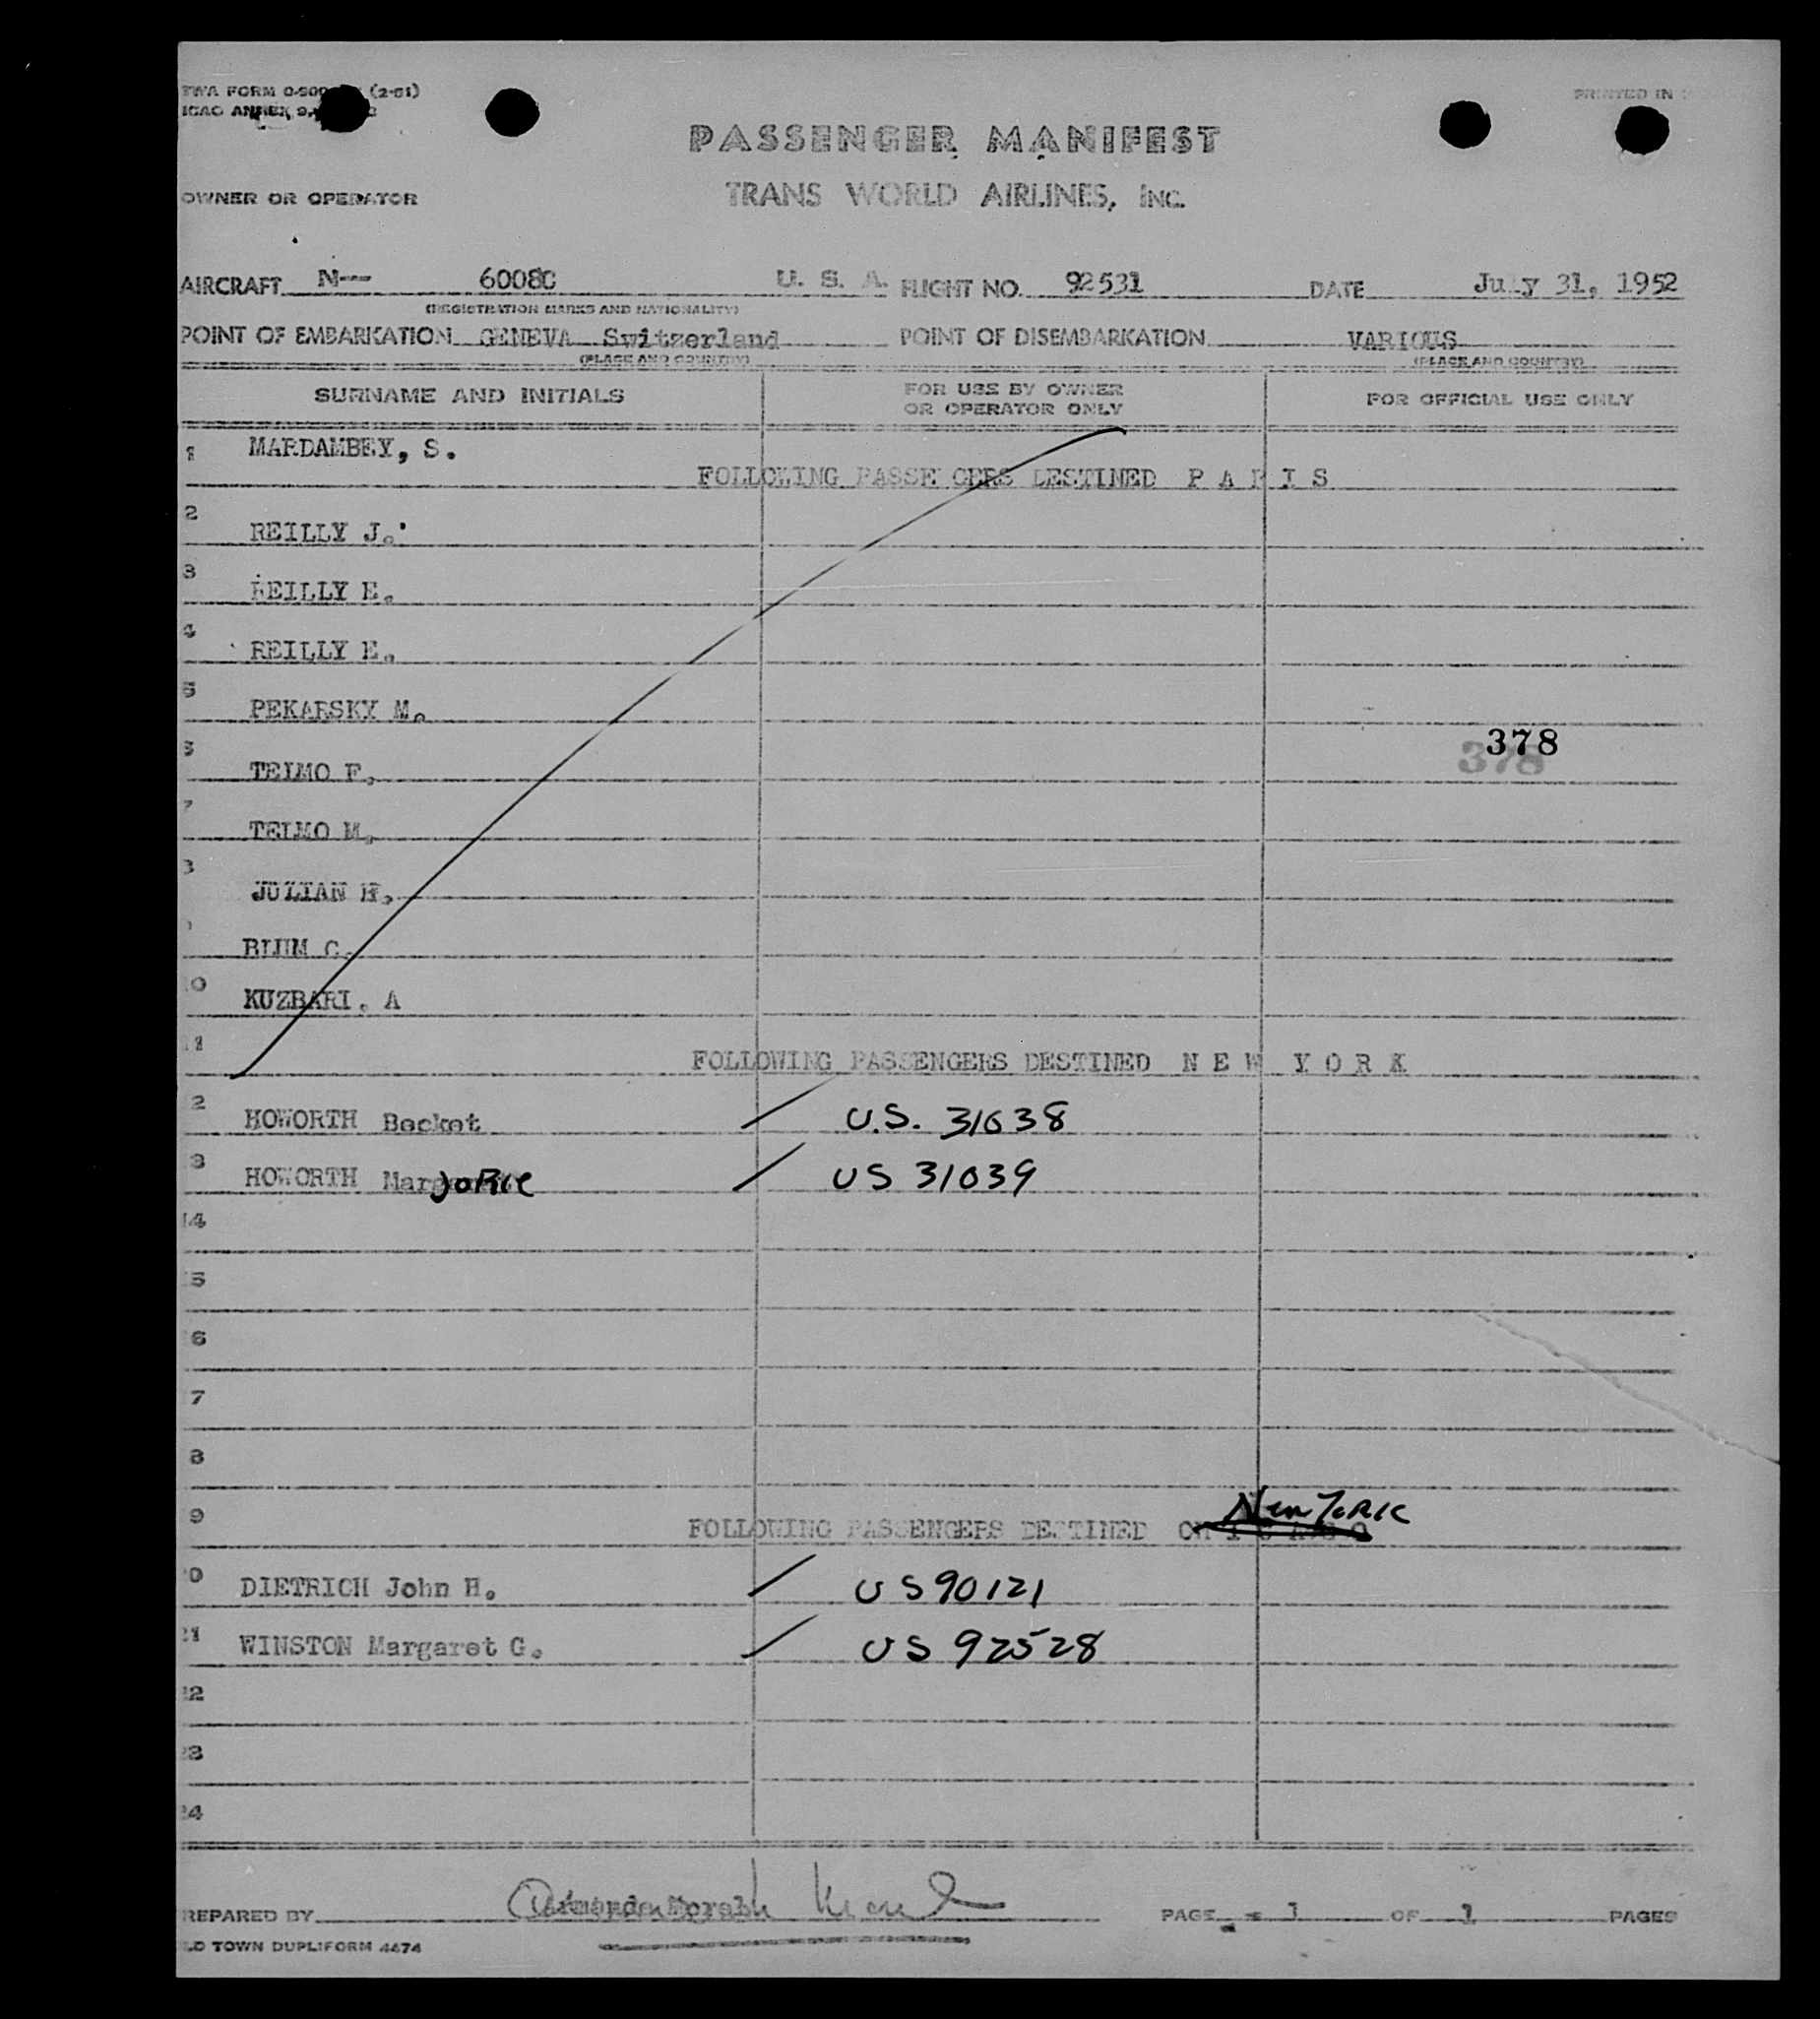 TWA FORM 0-900 (2-51)
ICAO ANNEX 9,
PRINTED IN
PASSENGER MANIFEST
OWNER OR OPERATOR
TRANS WORLD AIRLINES, INC.
AIRCRAFT N-- 6008C U. S. A. FLIGHT NO. 92531 DATE July 31, 1952
(REGISTRATION MARKS AND NATIONALITY)
POINT OF EMBARKATION GENEVA Switzerland POINT OF DISEMBARKATION VARIOUS
(PLACE AND COUNTRY) (PLACE AND COUNTRY)
SURNAME AND INITIALS FOR USE BY OWNER OR OPERATOR ONLY FOR OFFICIAL USE ONLY
1 MARDAMBEY, S.
FOLLOWING PASSENGERS DESTINED P A R I S
2 REILLY J.
3 REILLY E.
4 REILLY E.
5 PEKARSKY M.
378
378
TELMO F.
7 TELMO M.
JULIAN H.
BLUM C.
10 KUZBARI. A
11 FOLLOWING PASSENGERS DESTINED N E W Y O R K
2 HOWORTH Becket U.S. 31038
3 HOWORTH Marjorie US 31039
14
5
6
7
8
New York
9 FOLLOWING PASSENGERS DESTINED CHICAGO
0 DIETRICH John H. US 90121
21 WINSTON Margaret G. US 92528
22
23
24
REPARED BY PAGE 1 OF 1 PAGES
LD TOWN DUPLIFORM 4674